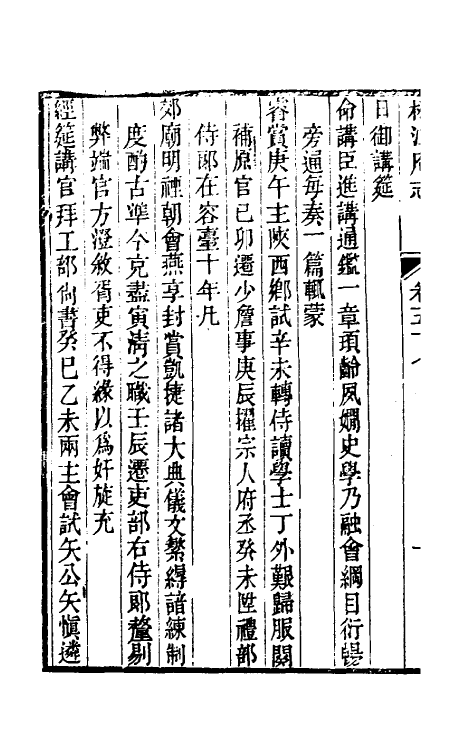 松江府志
卷五十八
一
日御講筵
命講臣進講通鑑一章頊齡夙嫻史學乃融會綱目衍暢
旁通每奏一篇輒蒙
睿賞庚午主陝西鄉試辛未轉侍讀學士丁外艱歸服闋
補原官己卯遷少詹事庚辰擢宗人府丞癸未陞禮部
侍郎在容臺十年凡
郊廟明禋朝會燕享封賞凱捷諸大典儀文縶縟諳練制
度酌古準今克盡寅清之職壬辰遷吏部右侍郎釐剔
弊端官方澄敘胥吏不得緣以爲奸旋充
經筵講官拜工部尚書癸巳乙未兩主會試矢公矢愼遴